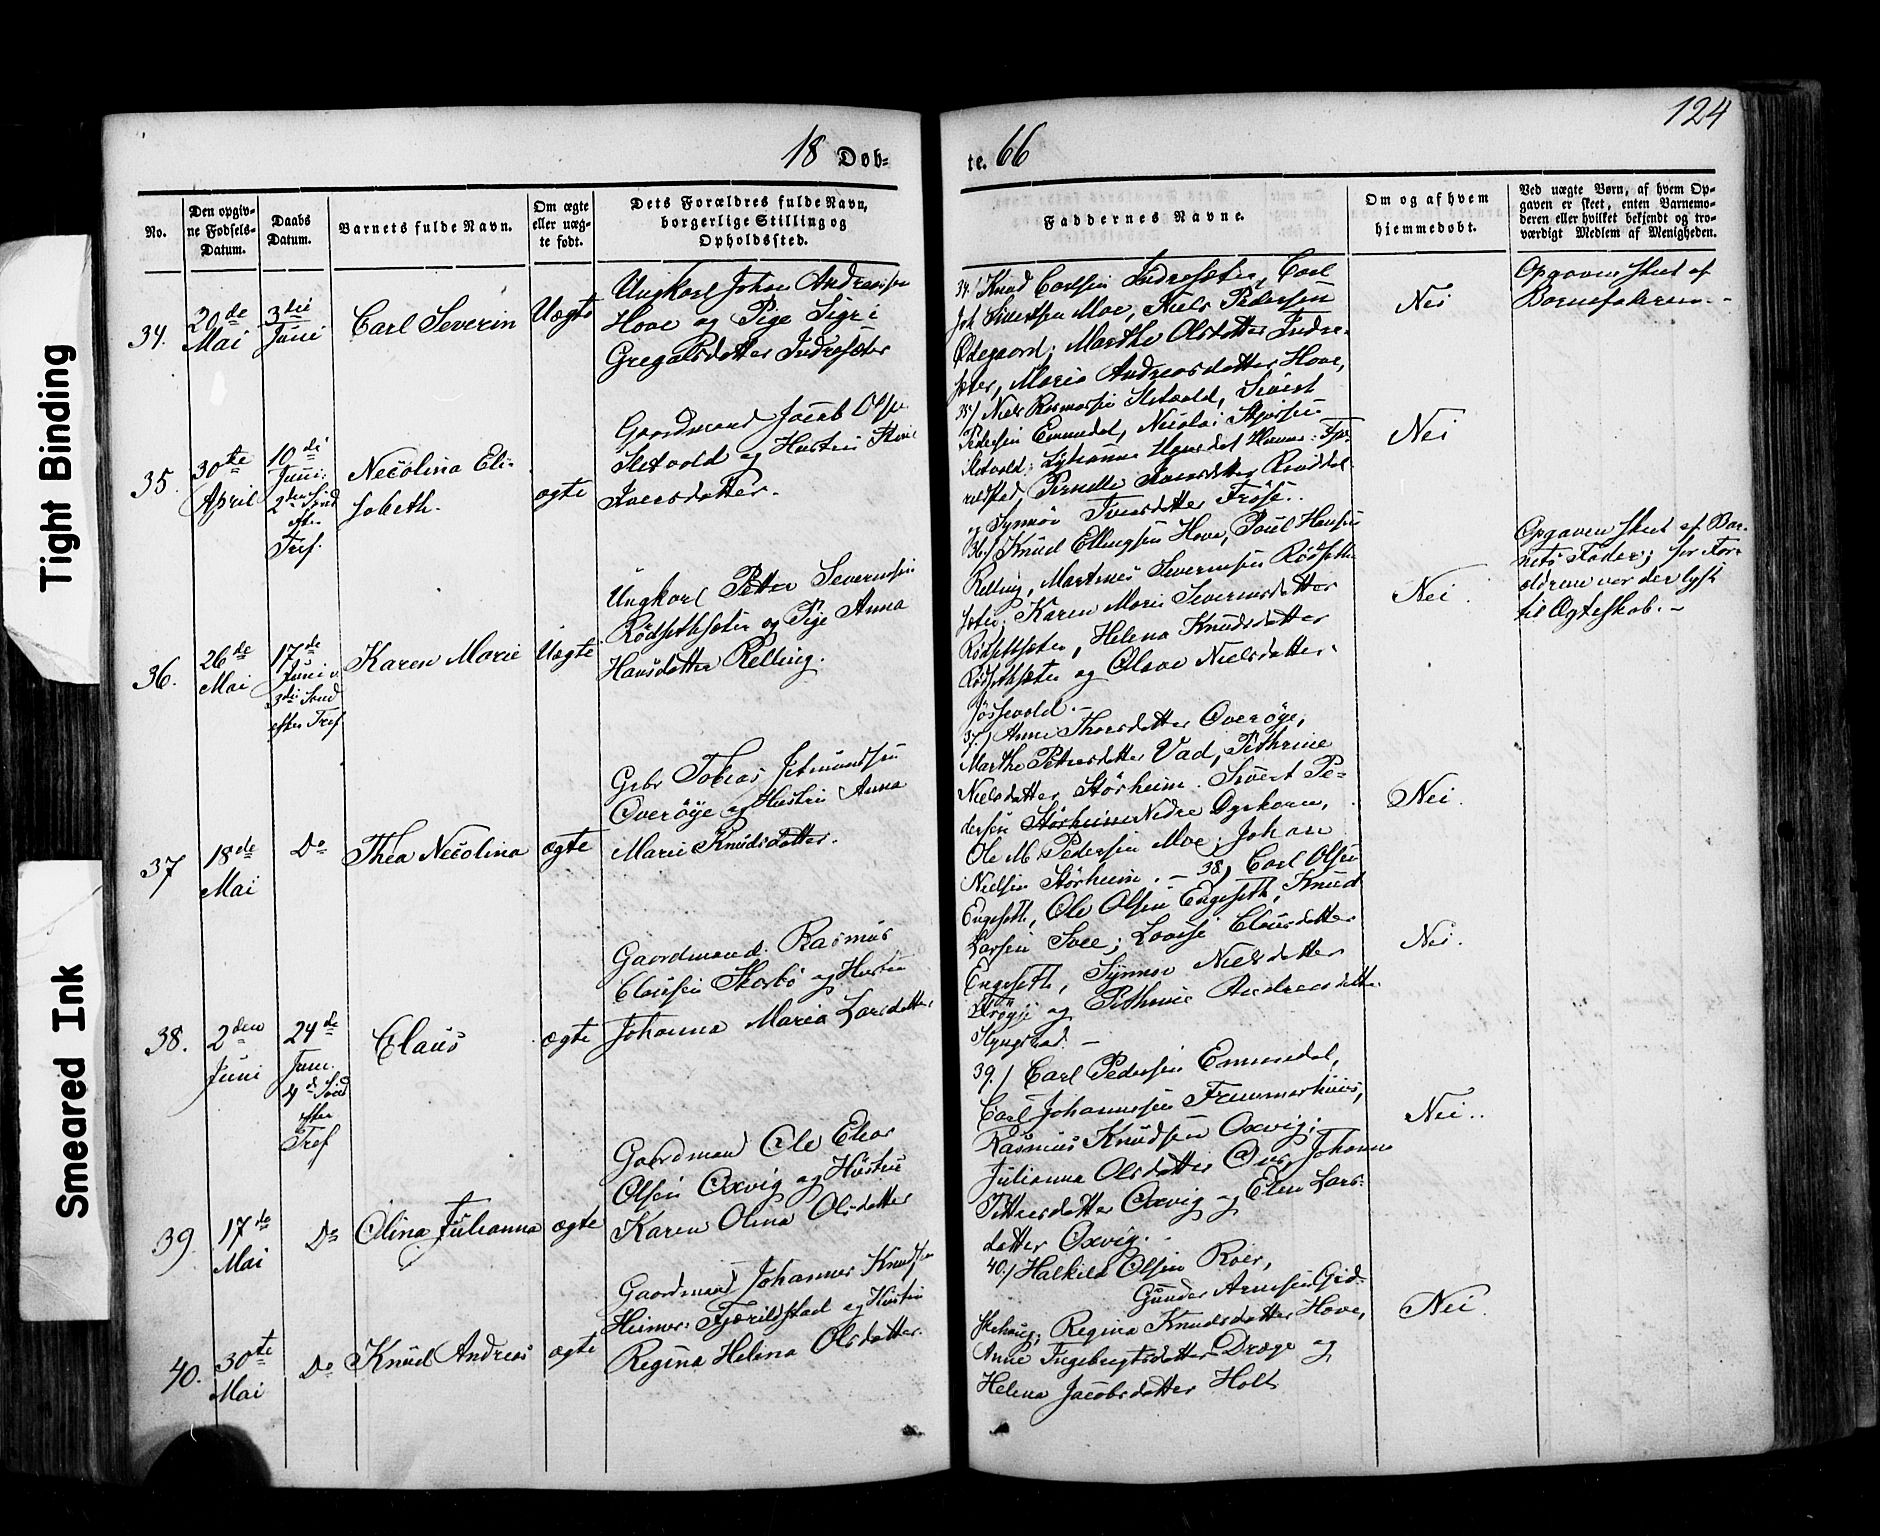 124
18 Døb-
te. 66
No.
Den opgiv-
ne Fødsels-
Datum.
Daabs
Datum.
Barnets fulde Navn.
Om ægte
eller uæg-
te født.
Dets Forældres fulde Navn,
borgerlige Stilling og
Opholdssted.
Faddernes Navne.
Om og af hvem
hjemmedøbt.
Ved uægte Børn, af hvem Op-
gaven er skeet, enten Barnemo-
deren eller hvilket bekjendt og tro-
værdigt Medlem af Menigheden.
34.
20de
Mai
3die
Juni
Carl Severin
Uægte
Ungkarl Johan Andreassen
Hove og Pige Sigri
Gregalsdatter Indresæter
34./ Knud Carlsen Indresæter, Carl
Joh Sivertsen Moe, Niels Pedersen
Ødegaard; Marthe Olsdatter Indre-
sæter, Maria Andreasdatter Hove,
Nei
Opgaven skeet af
Barnefaderen.-
35.
30te
April
10de
Juni.
2den Sønd
efter
Tref.
Necolina Eli-
sabeth.
ægte
Gaardmand Jacob Olsen
Sletvold og Hustru
Iversdatter.
35/ Niels Rasmussen Sletvold, Sivert
Pedersen Emmedal, Nicolai
Sletvold;
Pernelle Iversdatter
og Synnøv Iversdatter
Nei
36.
26de
Mai
17de
Juni
3die Sønd
efter Tref
Karen Marie
Uægte
Ungkarl Petter Severinsen
Rødsethsæter og Pige Anna
Hansdatter Relling.
36/ Knud Ellingsen Hove, Poul Hansen
Relling, Martines Severinsen Rødseth-
sæter; Karen Marie Severinsdatter
Rødsethsæter, Helena Knudsdatter
Rødsethsæter og Olave Nielsdatter
Jøssevold.-
Nei.
Opgaven skeet af Bar-
nets Fader; for For-
ældrene var der lyst
til Ægteskab.-
37
18de
Mai
Do
Thea Necolina
ægte
Gbr Tobias Jetmundsen
Overøye og Hustru Anna
Marie Knudsdatter.
37./ Anne Thoresdatter Overøye,
Marthe Petersdatter Vad, Pethrine
Nielsdatter Störheim. Sivert Pe-
dersen Störheim Nedre Dyrkorn,
Ole M. Pedersen Moe, Johan
Nielsen Störheim. - 38/ Carl Olsen
Nei.
38.
2den
Juni
24de
Juni.
4de Sønd
efter
Tref
Claus
ægte
Gaardmand Rasmus
Clausen Skorbö og Hustru
Johanna Maria Larsdatter
Engeseth, Ole Olsen Engeseth, Knud
Larsen Svee; Lovise Clausdatter
Engeseth, Synnøv Nielsdatter
og Pethrine Andreasdatter
Nei.
39.
17de
Mai
Do
Olina Julianna
ægte
Gaardmand Ole Elias
Olsen Oxvig og Hustru
Karen Olina Olsdatter
39./ Carl Pedersen Emmedal,
Carl Johannesen Fremmerhuus,
Rasmus Knudsen Oxvig;
Julianna Olsdatter Øie, Johanna
Pettersdatter Oxvig og Elen Lars-
datter Oxvig.
Nei..
40.
30te
Mai
Do
Knud Andreas
ægte
Gaardmand Johannes Knudsen
Fjørildstad og Hustru
Regina Helena Olsdatter.
40./ Halkild Olsen Roer,
Gunder Arnesen Gid-
skehaug; Regina Knudsdatter Hove,
Anne Ingebrigtsdatter Dræge og
Helena Jacobsdatter Holt
Nei.
Tight Binding
Smeared Ink